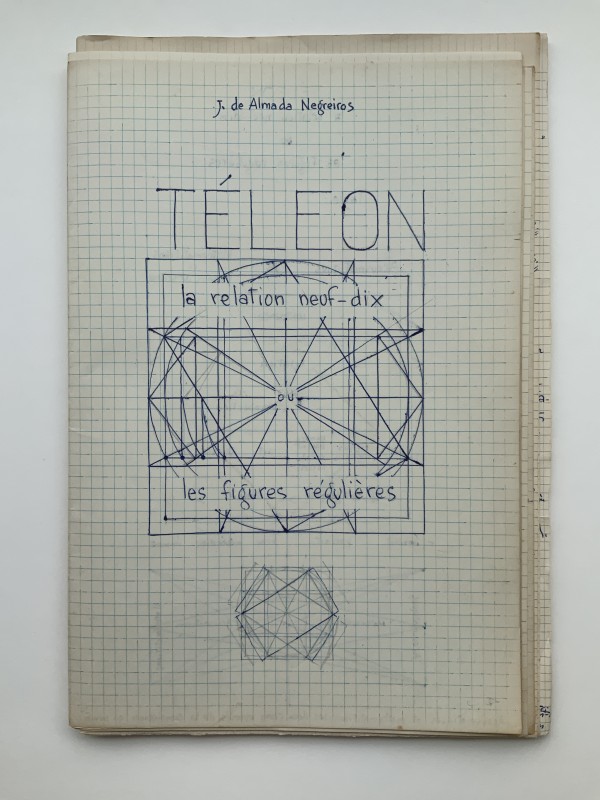 J. de Almada Negreiros
TÉLÉON
la relation neuf-dix
ou
les figures régulières